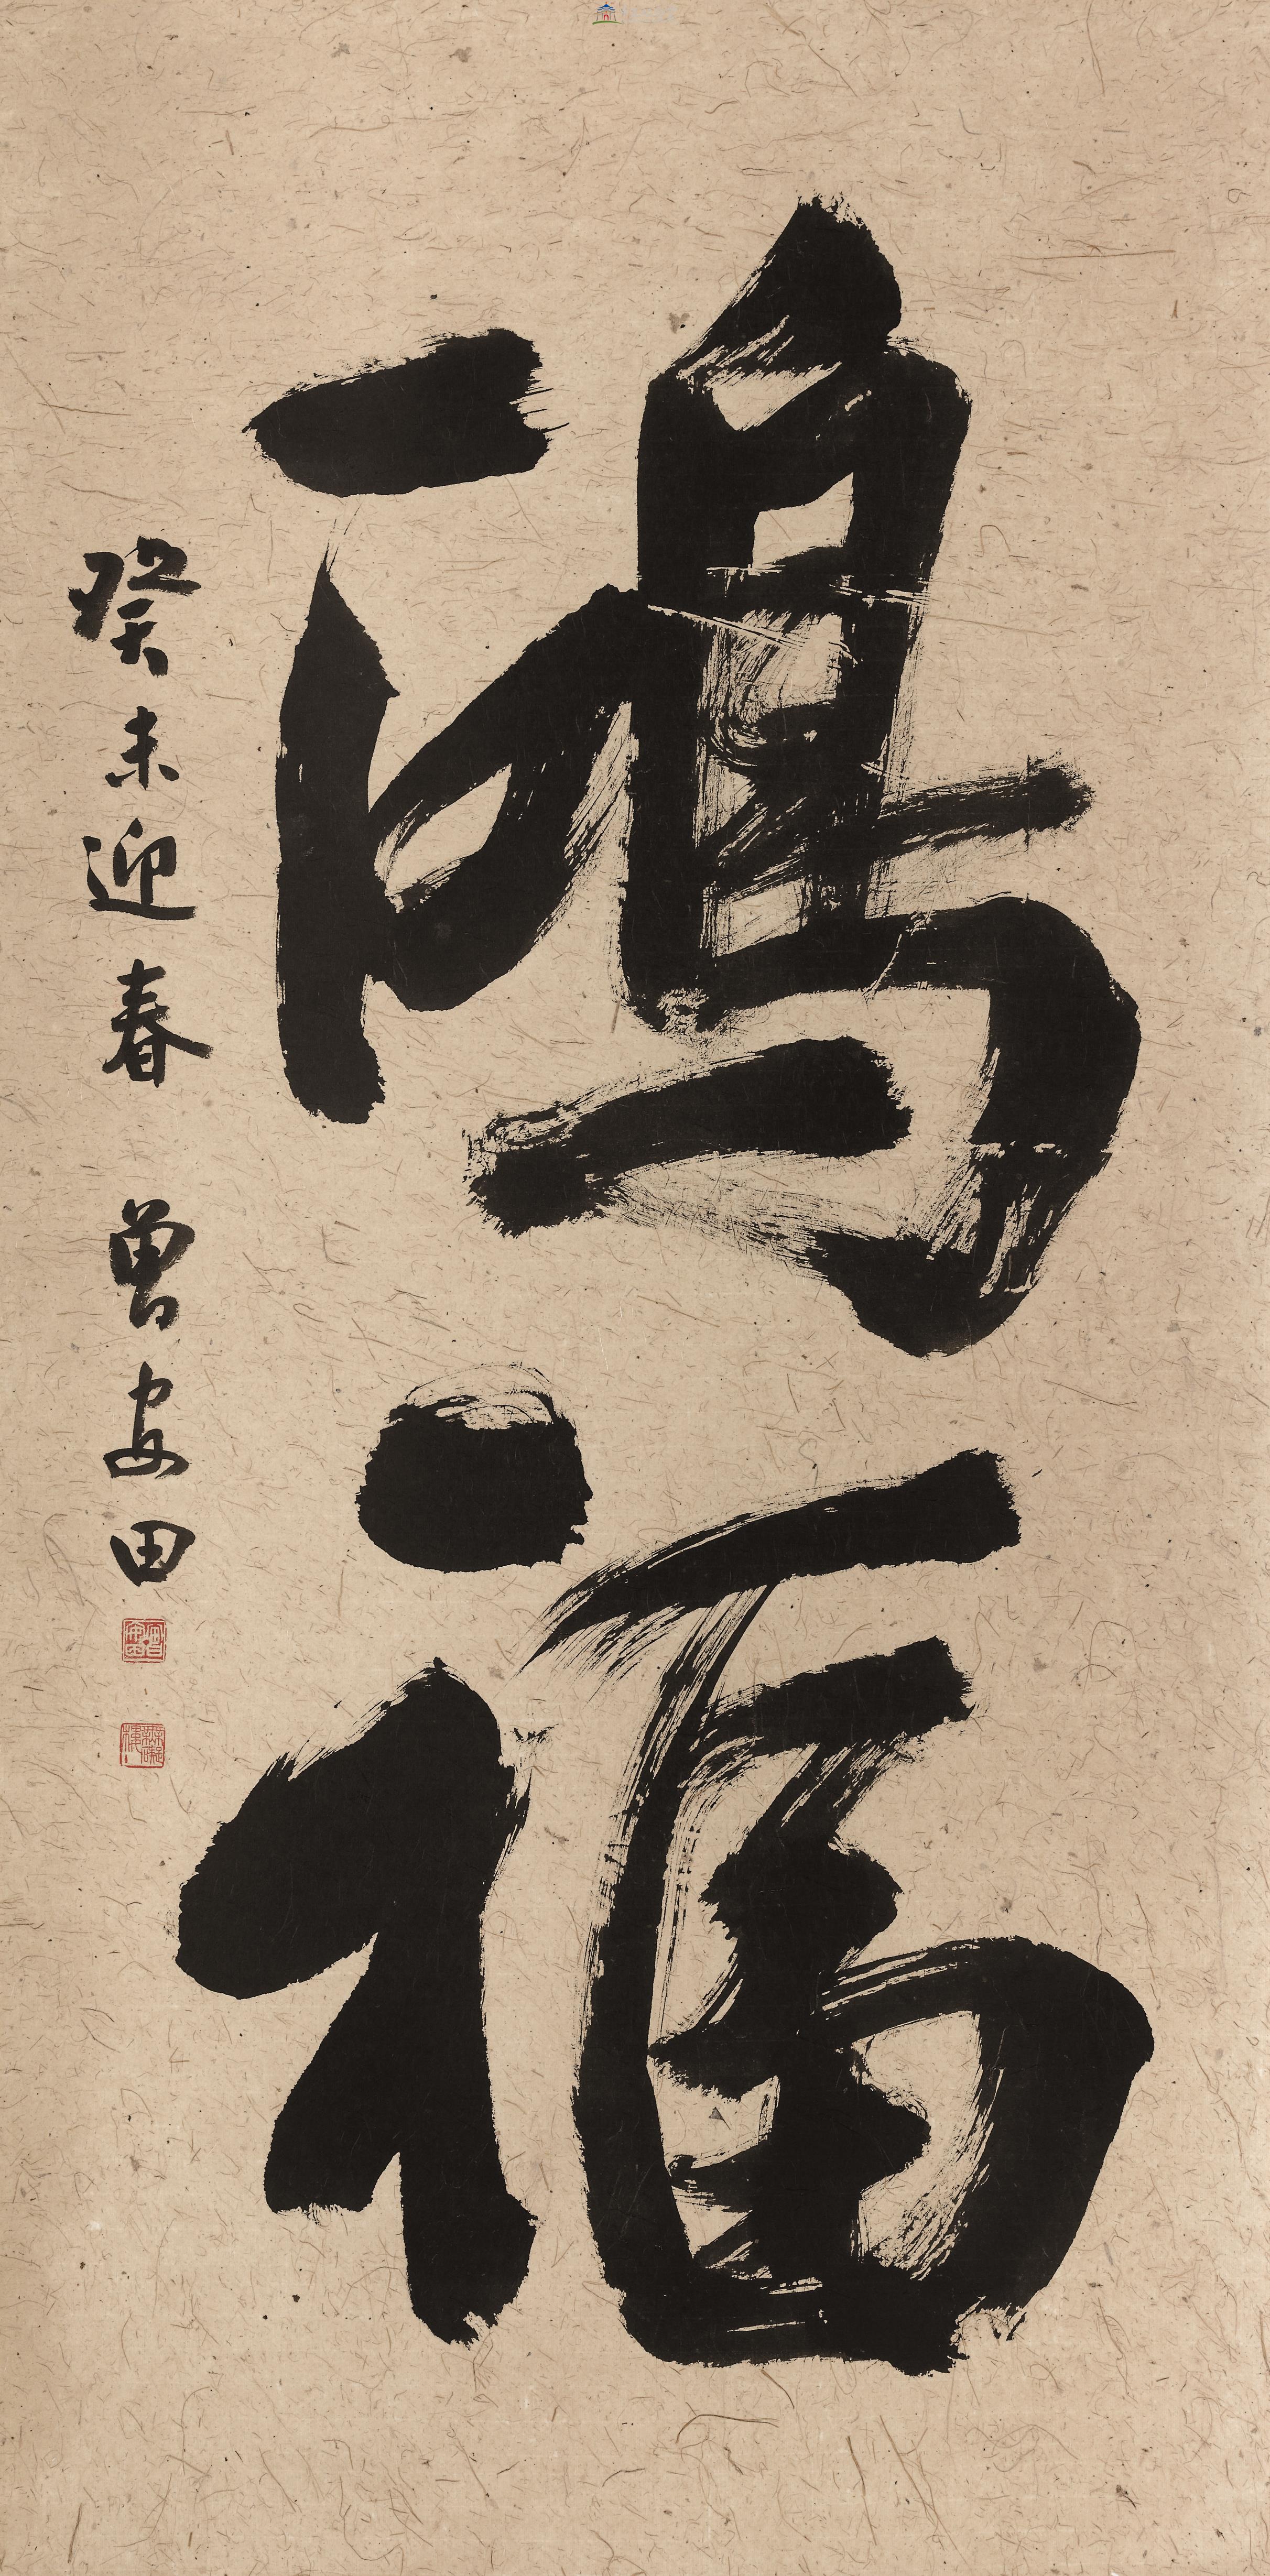 鴻福
癸未迎春 曾安田